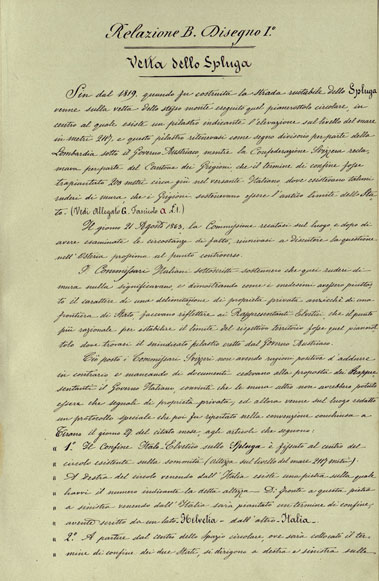 Relazione B. Disegno I.°
Vetta dello Spluga
Sin dal 1819, quando fu costruita la strada ruotabile dello Spluga
venne sulla vetta dello stesso monte eseguito quel piazzaletto circolare, in
centro al quale esiste un pilastro indicante l'elevazione sul livello del mare
in metri 2117, e questo pilastro ritenevasi come segno divisorio per parte della
Lombardia sotto il Governo Austriaco mentre la Confederazione Svizzera recla-
mava per parte del Cantone dei Grigioni che il termine di confine fosse
trapiantato 200 metri circa giù nel versante Italiano dove esistevano taluni
ruderi di mura che i Grigioni sostenevano essere l'antico limite dello Sta-
to. (Vedi Allegato G. Fascicolo a L1.)
Il giorno 21 Agosto 1863, la Commissione recatasi sul luogo e dopo di
avere esaminate le circostanze di fatto, riunivasi a discutere la questione
nell'Osteria prossima al punto controverso.
I Commissari Italiani sottoscritti sostennero che quei ruderi di
mura nulla significavano e dimostrando come i medesimi avessero piutto-
sto il carattere di una delimitazione di proprietà privata anzichè di una
frontiera di Stato, facevano riflettere ai Rappresentanti Elvetici che il punto
più razionale per istabilire il limite del rispettivo territorio fosse quel piazzalet-
tolo dove trovasi il suindicato pilastro eretto dal Governo Austriaco.
Ciò posto i Commissari Svizzeri non avendo ragioni positive d'addurre
in contrario e mancando di documenti cedevano alla proposta dei Rappre-
sentanti il Governo Italiano, convinti che le mura altro non avrebbero potuto
essere che segnali di proprietà privata, ed allora venne sul luogo redatto
un protocollo speciale che poi fu riportato nella convenzione conchiusa a
Tirano il giorno 27 del citato mese, agli articoli che seguono:
" 1.° Il Confine Italo-Elvetico sullo Spluga è fissato al centro del
" circolo esistente sulla sommità (Altezza sul livello del mare 2117 metri)
" A destra del circolo venendo dall'Italia esiste una pietra sulla quale
" havvi il numero indicante la detta altezza - Di fronte a questa pietra
" a sinistra venendo dall'Italia sarà piantato un termine di confine,
" avente scritto da un lato - Helvetia - dall'altro - Italia -
" 2.° A partire dal centro dello spazio circolare, ove sarà collocati il ter-
" mine di confine dei due Stati, si dirigono a destra e sinistra sulla